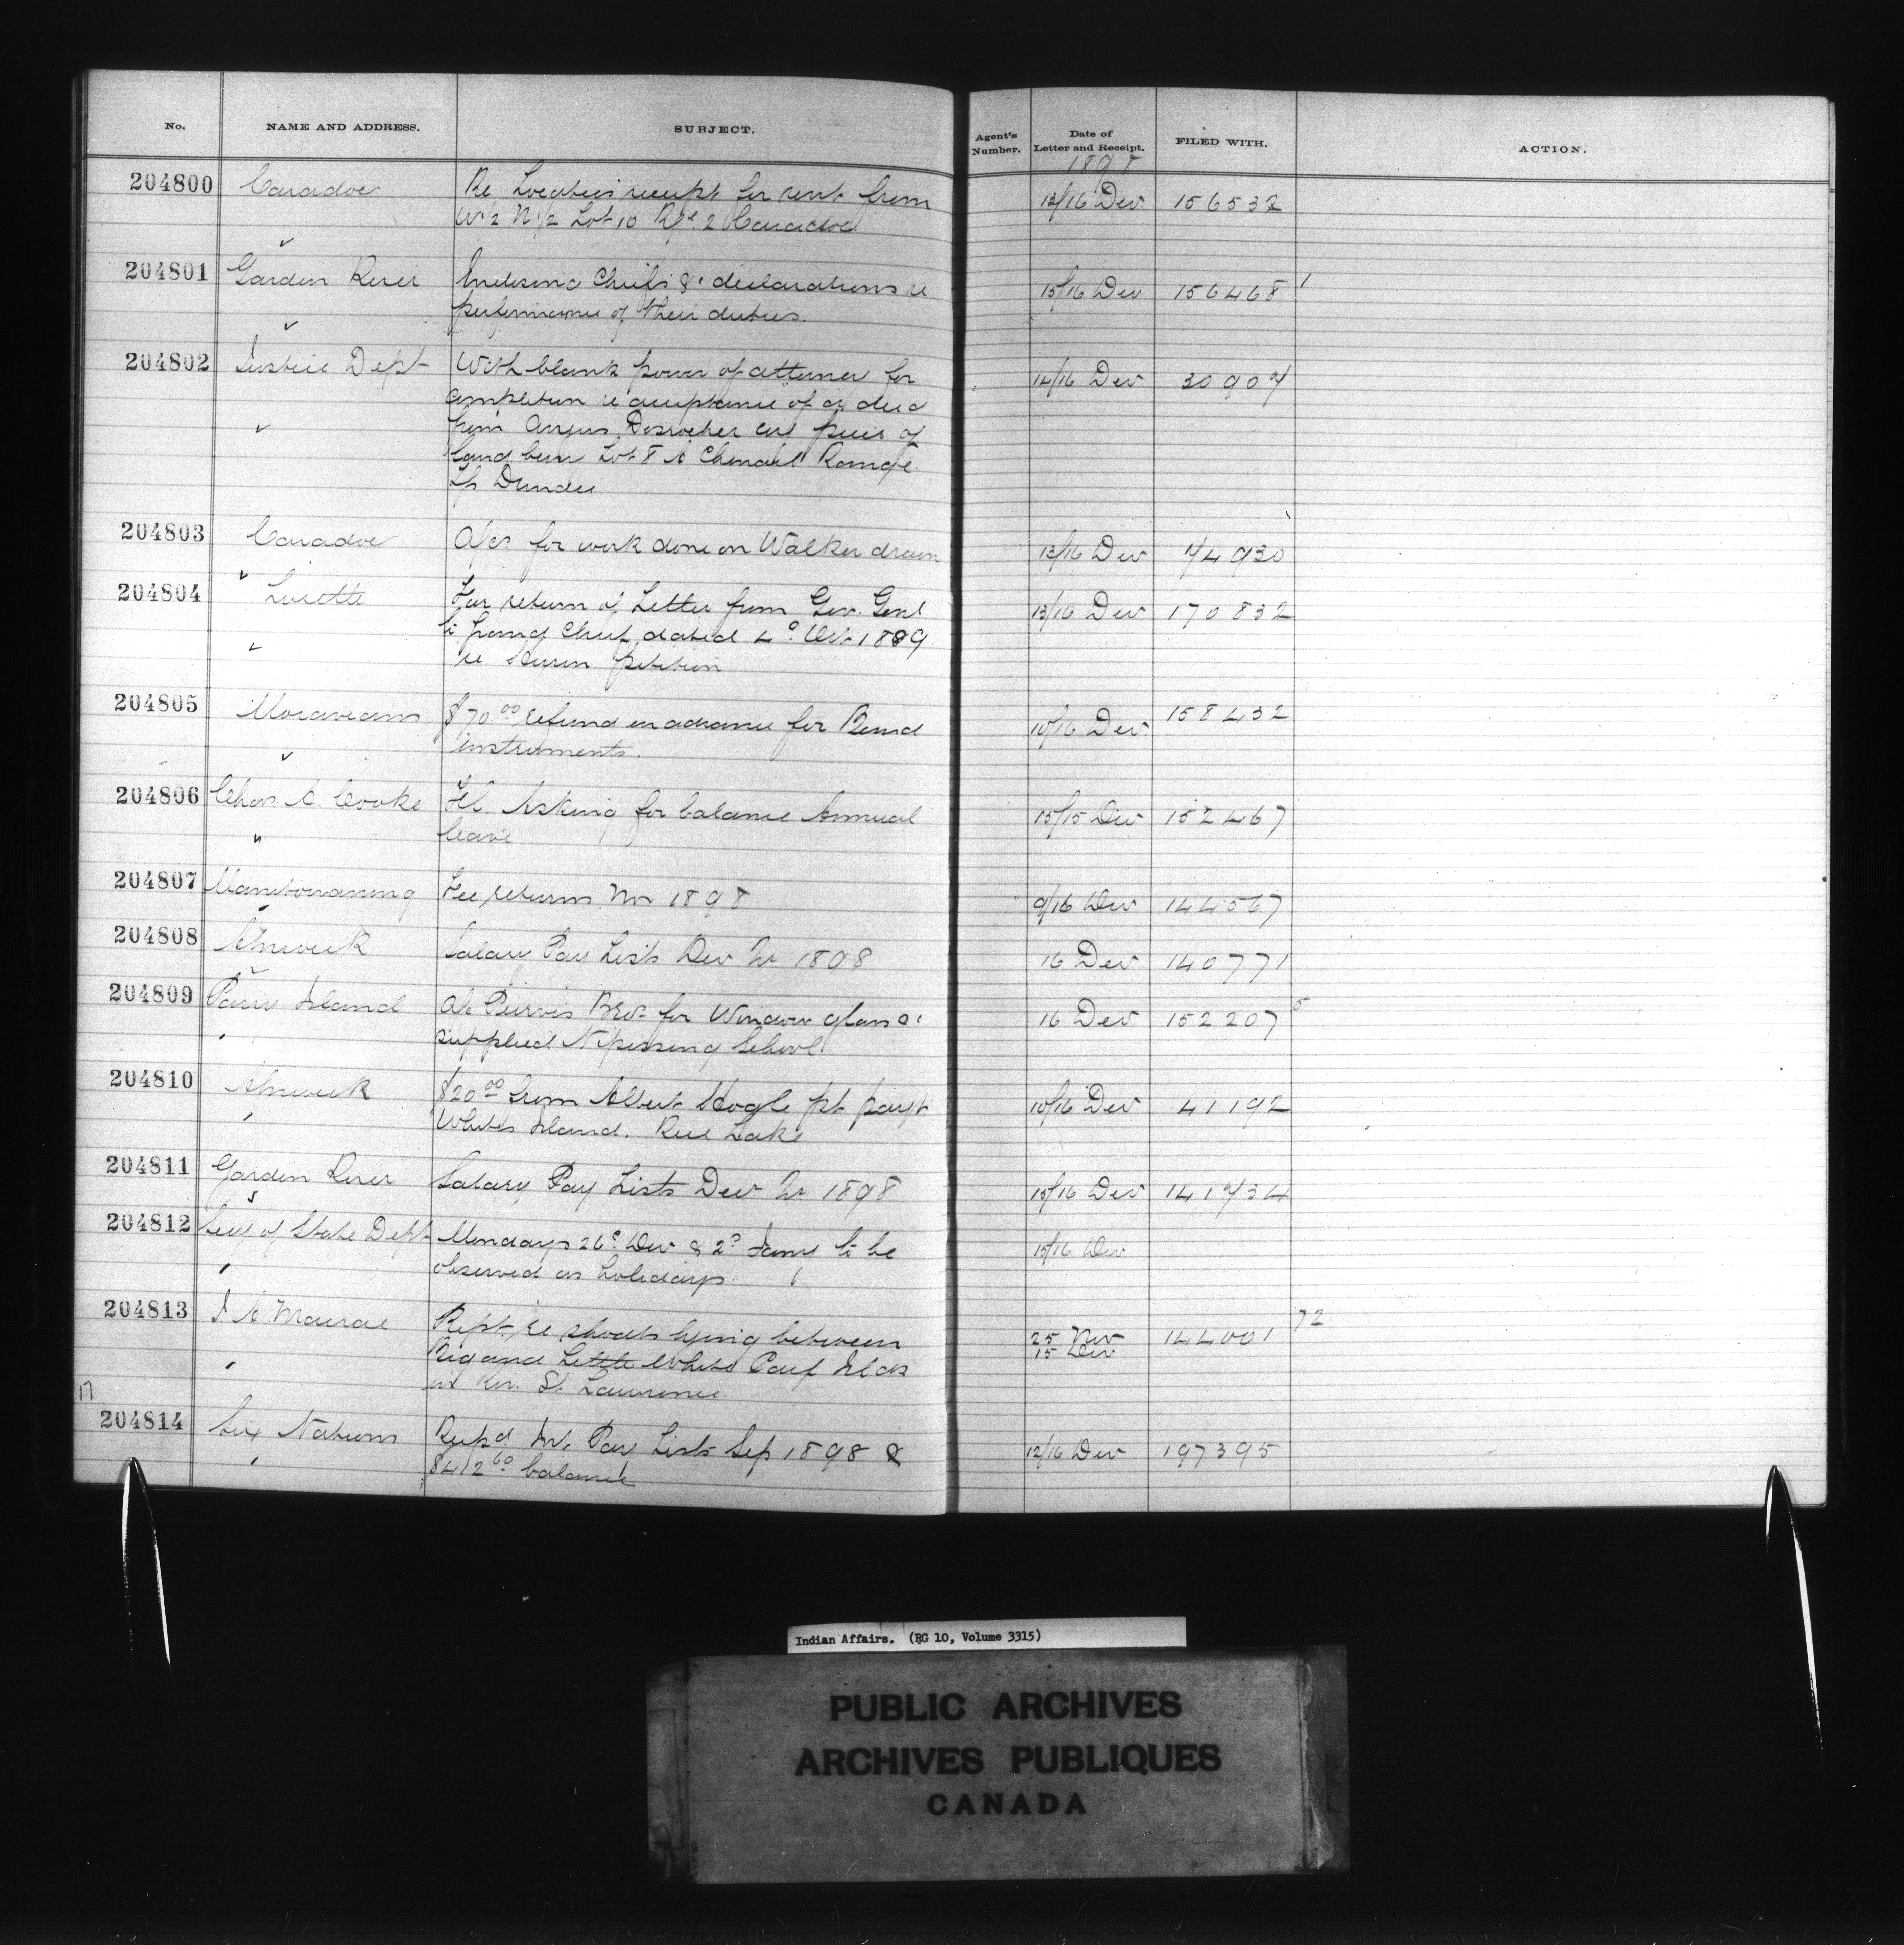 No. NAME AND ADDRESS. SUBJECT. Agent's Number. Date of Letter and Receipt. FILED WITH. ACTION.
1898
204800 Caradoc Re Locatees receipt for rent from 13/16 Dec 156532
W½ N½ Lot 10 Rge. 2 Caradoc
204801 Garden River Enclosing Chiefs &c declarations re 15/16 Dec 156468 1
performance of their duties.
204802 Justice Dept With blank power of attorney for 14/16 Dec 30907
completion re acceptance of a deed
from Angus Desrocher piece of
land being Lot 8 A Chenail Range
Tp Dundee
204803 Caradoc A/cs for work done on Walker drain 13/16 Dec 74930
204804 Lorette For return of Letter from Gov. Genl 13/16 Dec 170832
to grand Chief dated 4° Oct 1889
re Huron petition
204805 Moravians $70.00 refund on advance for Band 10/16 Dec 158432
instruments.
204806 Chas A. Cooke Asking for balance Annual 15/15 Dec 152467
leave
204807 Manitowaning Fee returns Nov 1898 9/16 Dec 144567
204808 Alnwick Salary Pay Lists Dec Qr 1898 16 Dec 140771
204809 Parry Island A/c Purvis Bros for Window glass &c 16 Dec 152207 5
supplied Nipissing School
204810 Alnwick $20.00 from Albert Hogle pt payt 10/16 Dec 41192
Whites Island. Rice Lake
204811 Garden River Salary Pay Lists Dec Qr 1898 15/16 Dec 141734
204812 Secy of State Dept Mondays 26° Dec & 2° Jany to be 15/16 Dec
observed as holidays.
204813 Rept. re shoals lying between 25 Nov 15 Dec 144001 72
Big and Little White Calf Islds
in Riv. St. Lawrence.
17
204814 Six Nations Int. Pay Lists Sep 1898 & 12/16 Dec 197395
$412.60 balance
Indian Affairs. (RG 10, Volume 3315)
PUBLIC ARCHIVES
ARCHIVES PUBLIQUES
CANADA